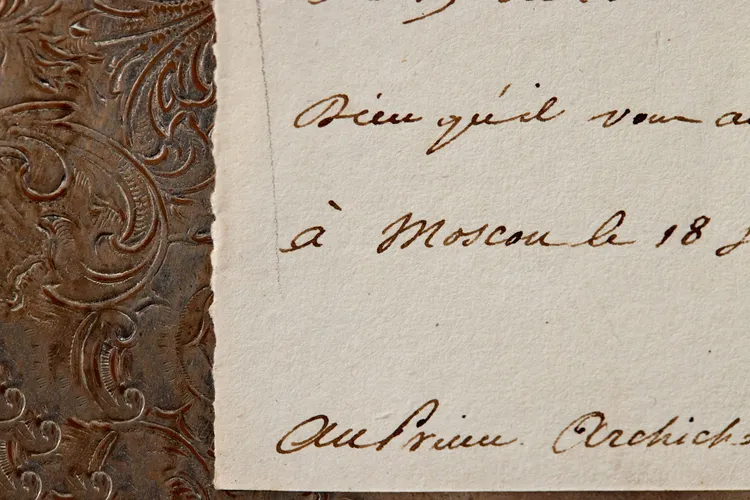 Dieu qu'il vous a
à Moscou le 18
Au Prince Archich